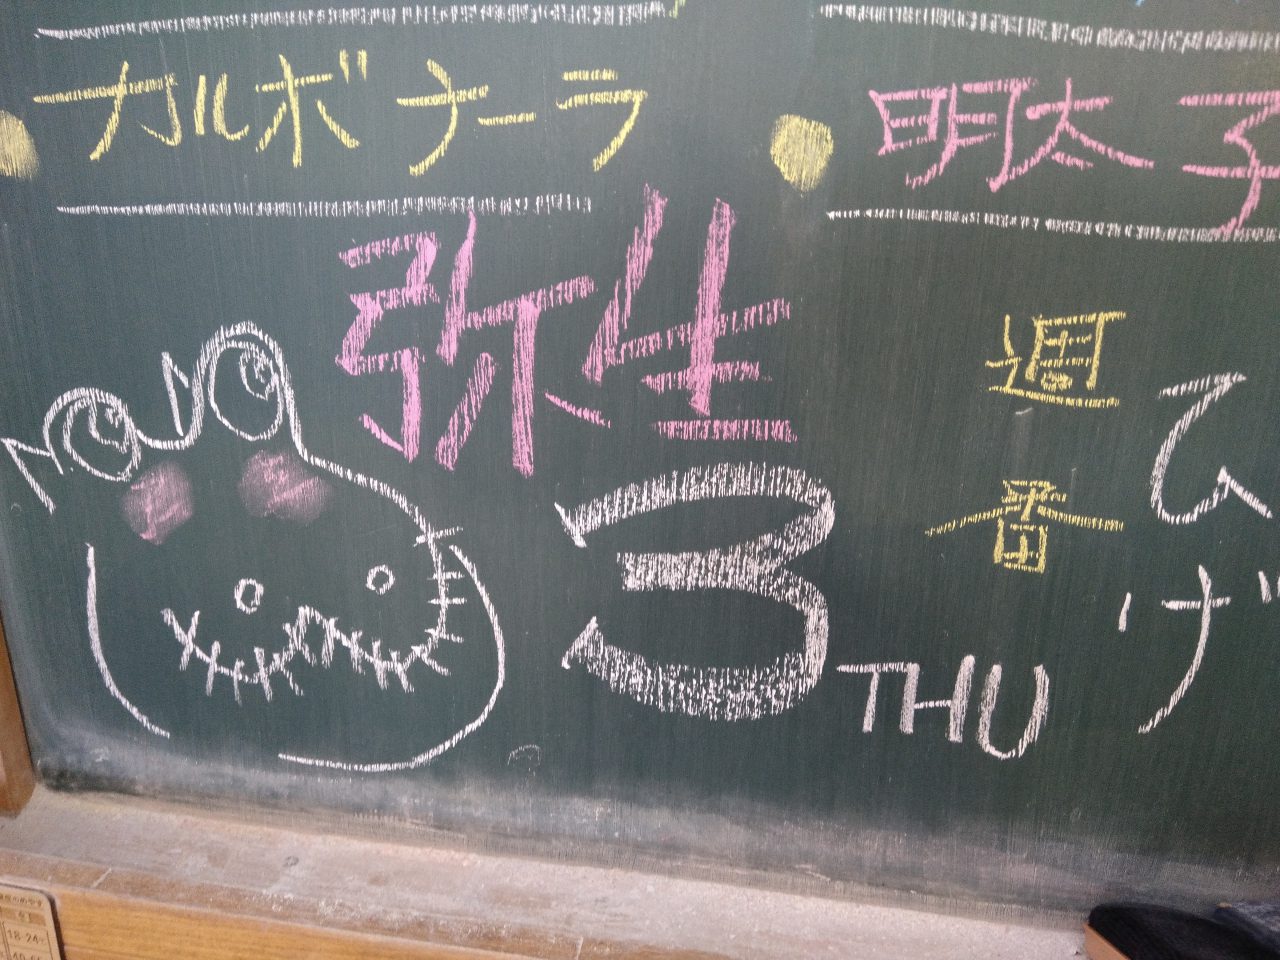 カルボナーラ
明太子
弥生
3 THU
週番
ひげ
18-24